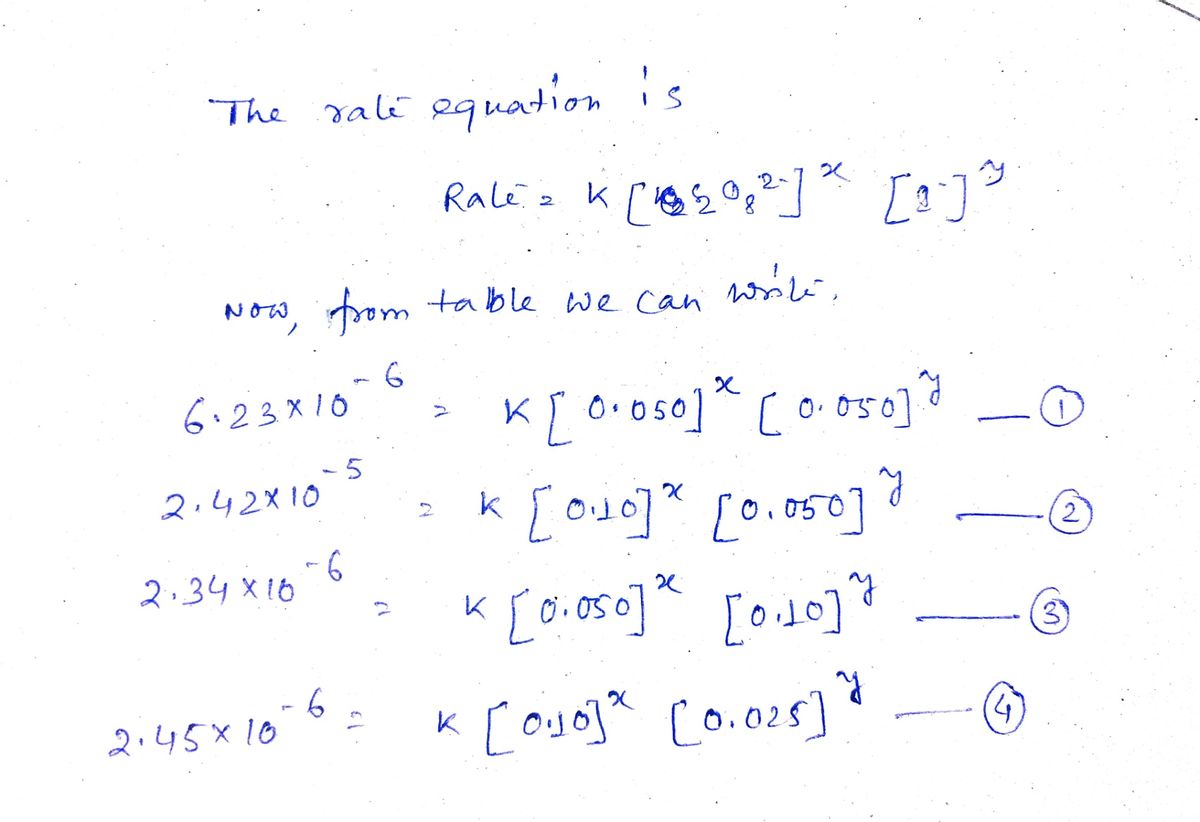 The rate equation is
Rate = K [S2O8²⁻]ˣ [I⁻]ʸ
Now, from table we can write,
6.23×10⁻⁶ = K [0.050]ˣ [0.050]ʸ — ①
2.42×10⁻⁵ = K [0.10]ˣ [0.050]ʸ — ②
2.34×10⁻⁶ = K [0.050]ˣ [0.10]ʸ — ③
2.45×10⁻⁶ = K [0.10]ˣ [0.025]ʸ — ④